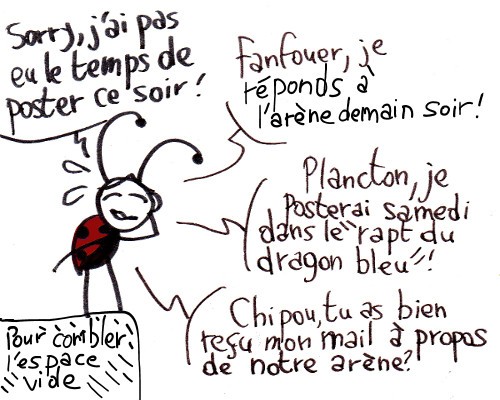 Sorry, j'ai pas
eu le temps de
poster ce soir!
Fanfouer, je
réponds à
l'arène demain soir!
Plancton, je
Posterai samedi
dans le "rapt du
dragon bleu"!
Chipou, tu as bien
reçu mon mail à propos
de notre arène?
Pour combler
l'espace
vide